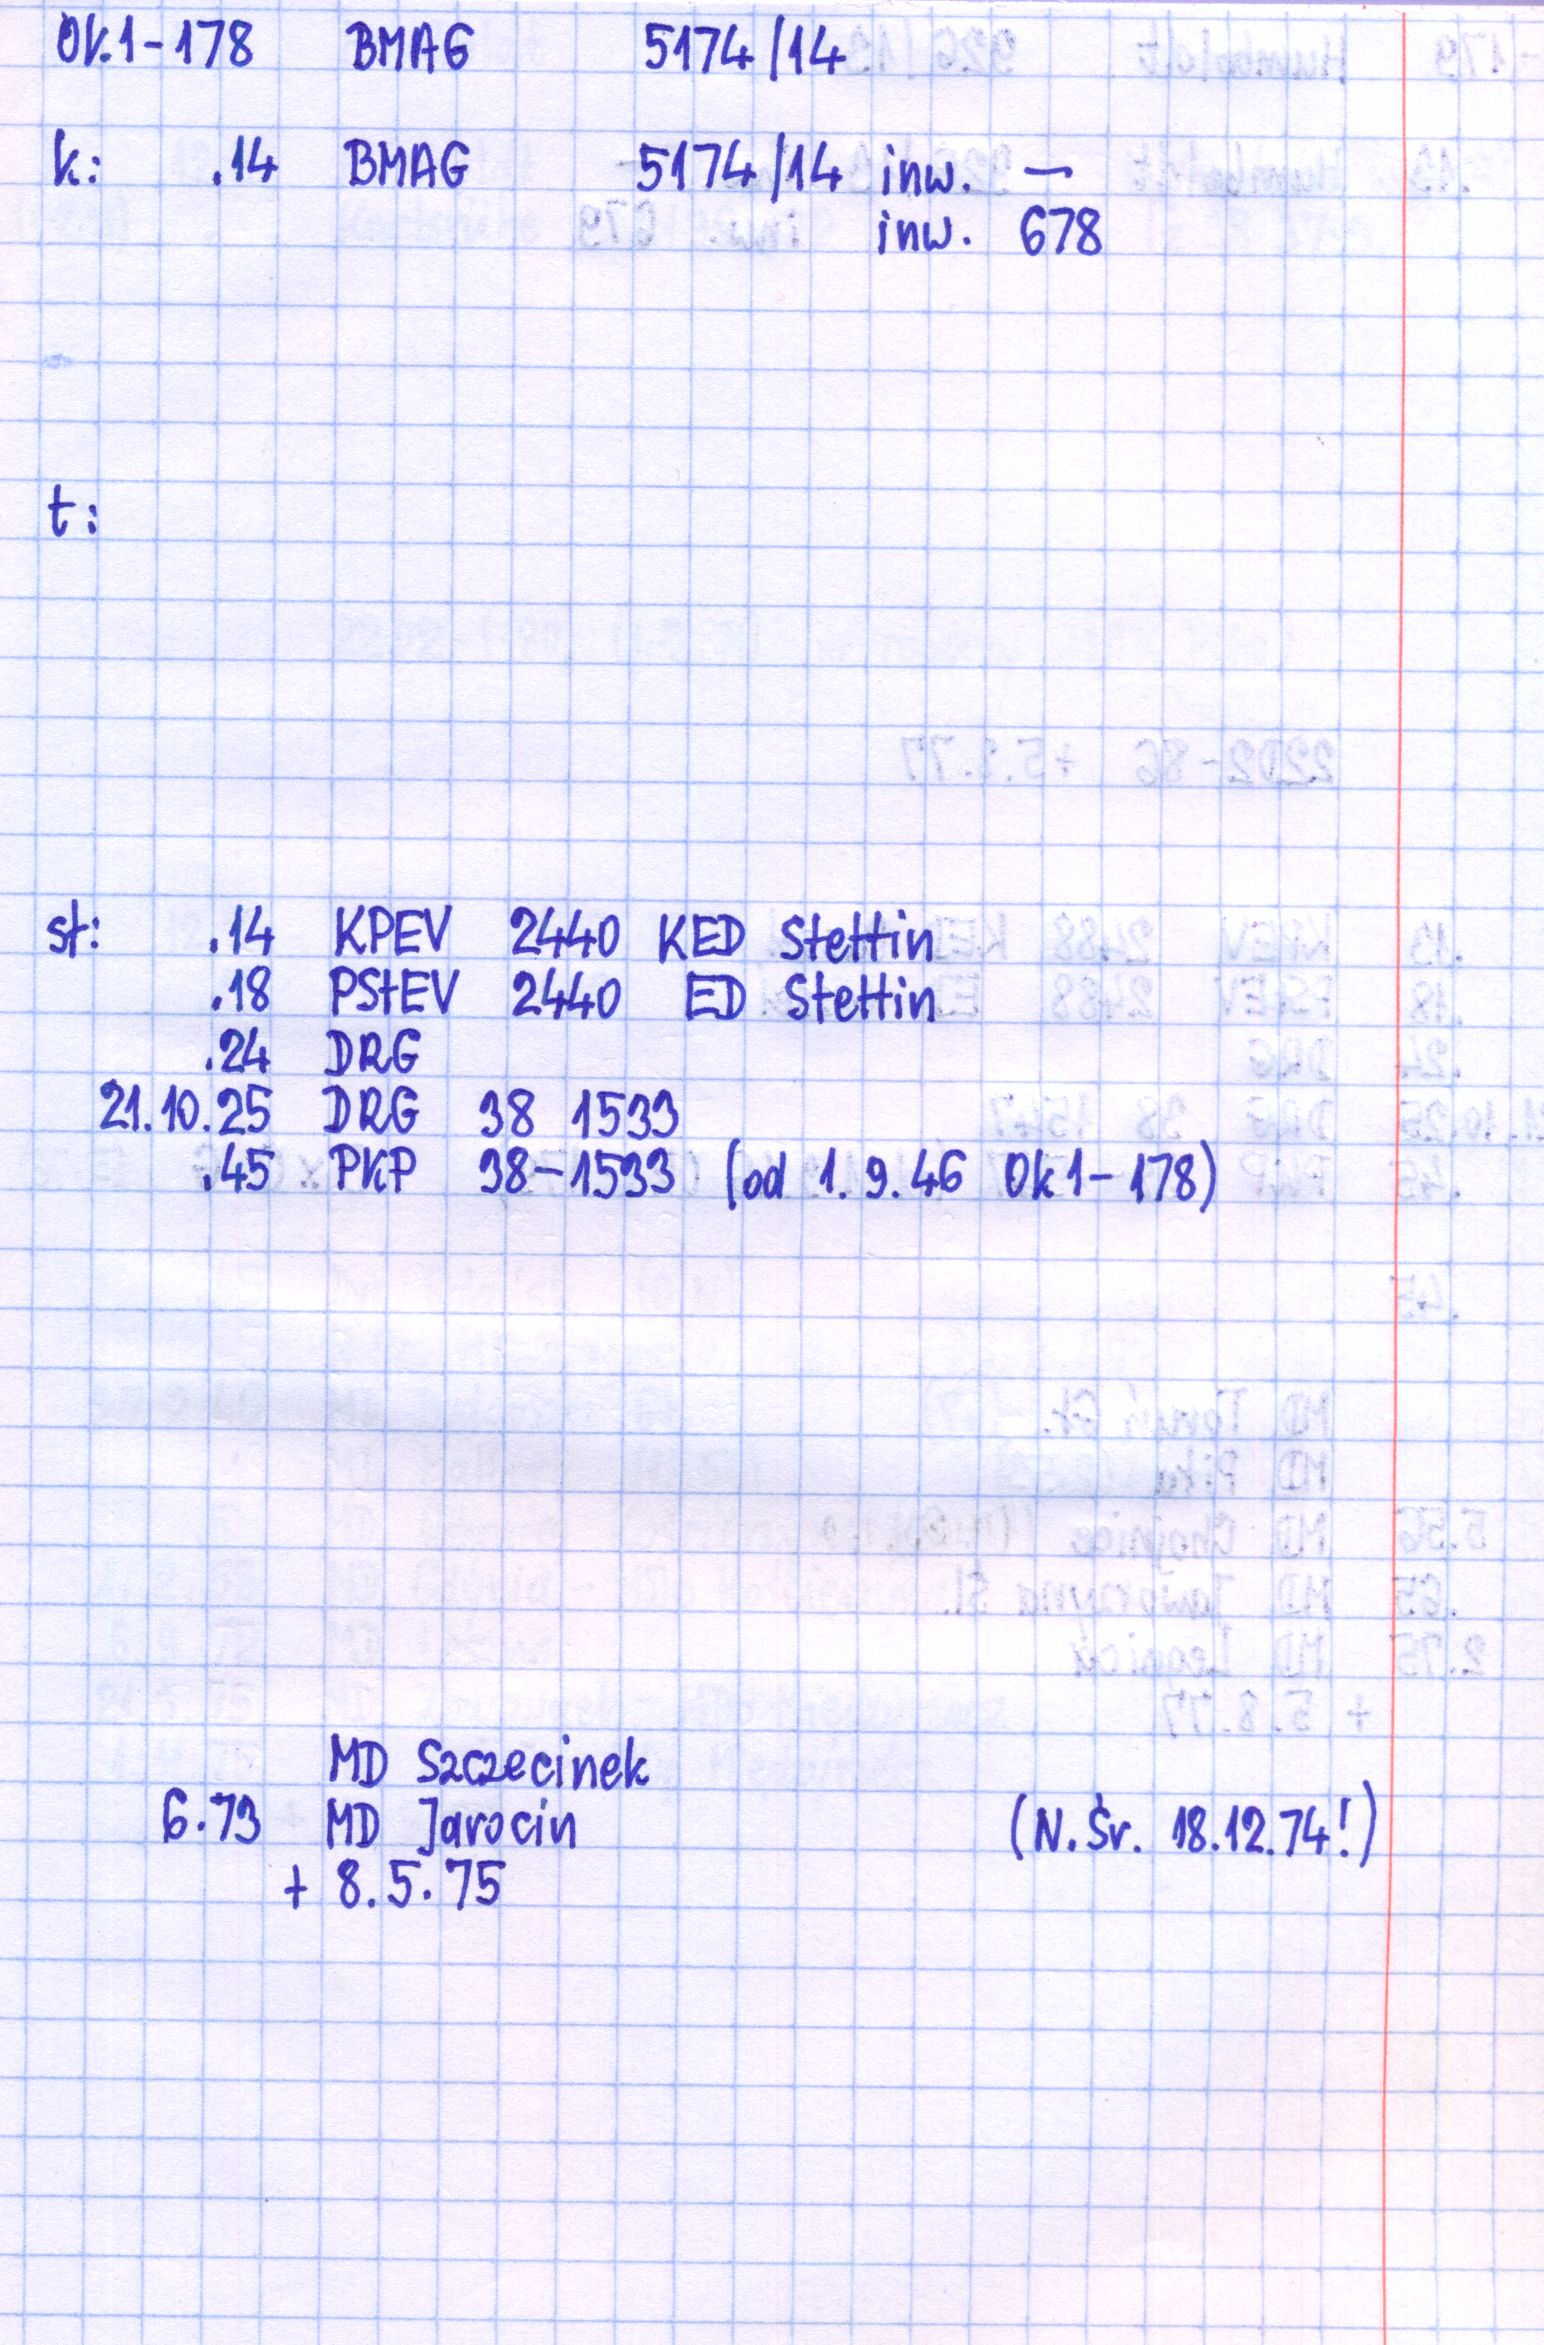 Ok1-178 BMAG 5174/14
k: .14 BMAG 5174/14 inw. —
inw. 678
t:
st: .14 KPEV 2440 KED Stettin
.18 PStEV 2440 ED Stettin
.24 DRG
21.10.25 DRG 38 1533
.45 PKP 38-1533 (od 1.9.46 Ok1-178)
MD Szczecinek
6.73 MD Jarocin (N.Śr. 18.12.74!)
+ 8.5.75